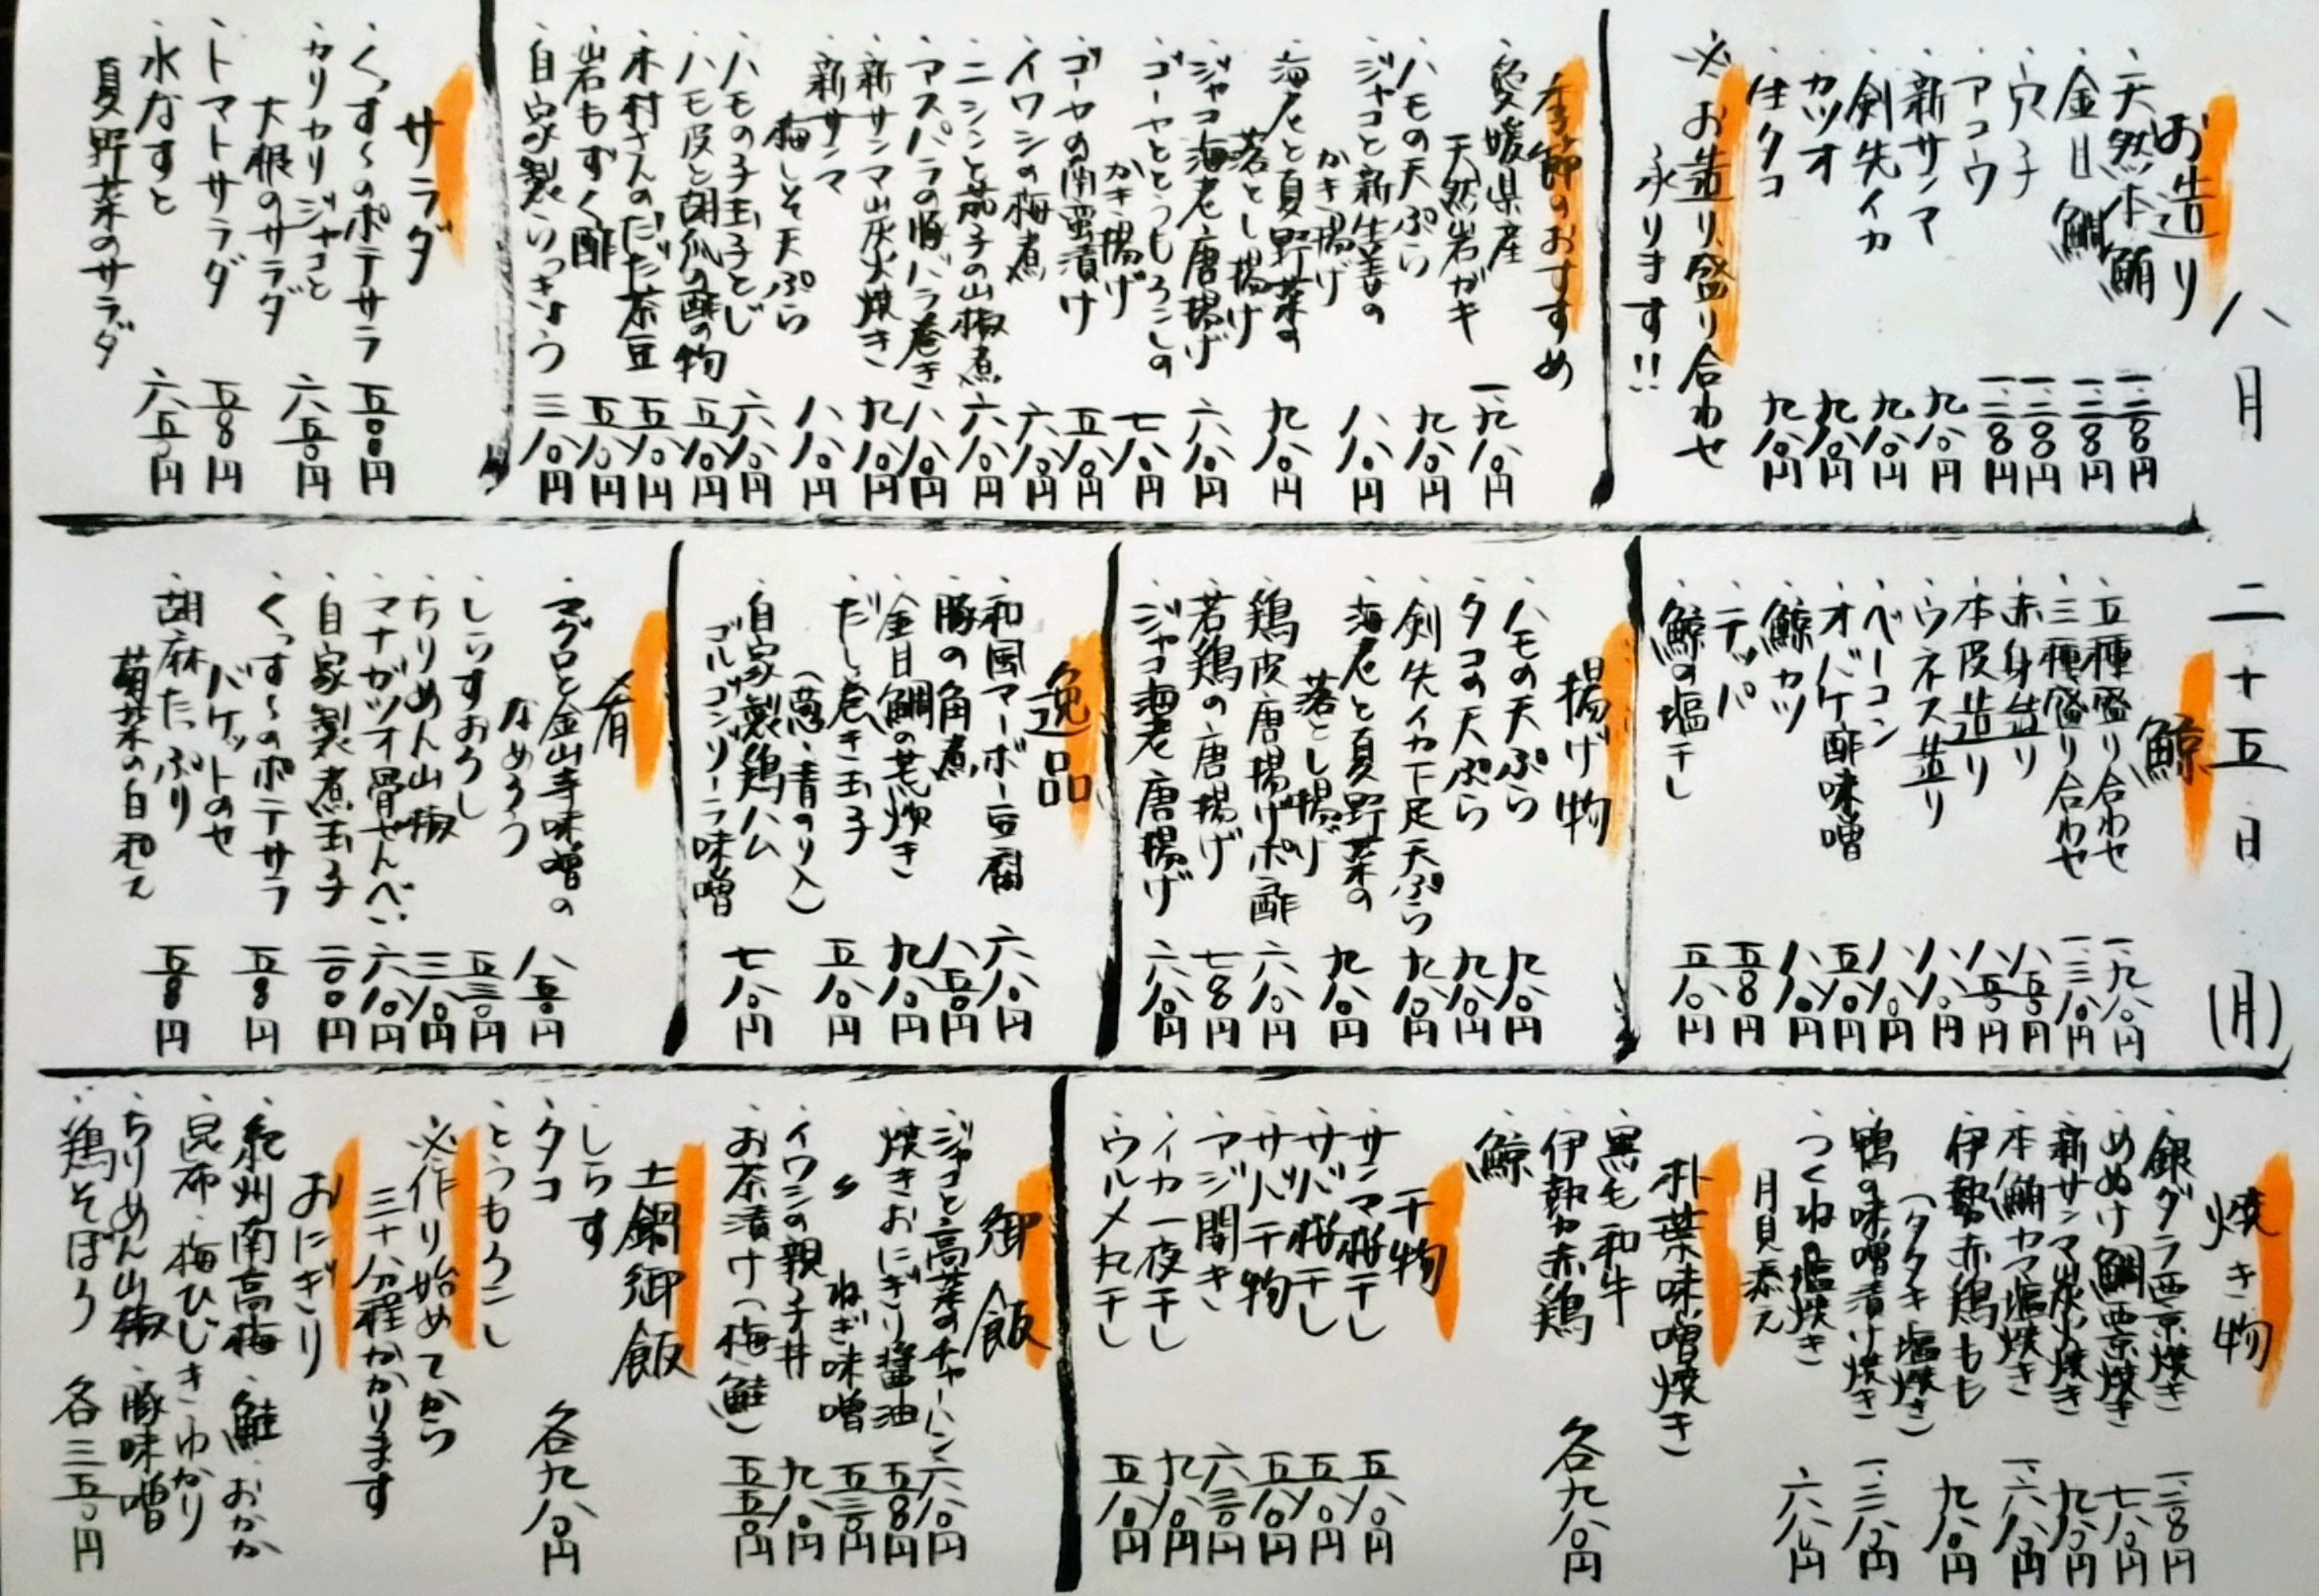 八月 二十五日 (月)
お造り
・天然本鮪 一、二〇〇円
・金目鯛 一、二〇〇円
・穴子 一、二〇〇円
・アコウ 一、二〇〇円
・新サンマ 九八〇円
・剣先イカ 九八〇円
・カツオ 九八〇円
・生タコ 九八〇円
※お造り盛り合わせ
承ります!!
季節のおすすめ
・愛媛県産
天然岩ガキ 一、九八〇円
・ハモの天ぷら 九八〇円
・ジャコと新生姜の
かき揚げ 八八〇円
・海老と夏野菜の
落とし揚げ 九八〇円
・ジャコ海老唐揚げ 六八〇円
・ゴーヤととうもろこしの
かき揚げ 七八〇円
・ゴーヤの南蛮漬け 五八〇円
・イワシの梅煮 六八〇円
・ニシンと茄子の山椒煮 六八〇円
・アスパラの豚バラ巻き 八八〇円
・新サンマ炭火焼き 九八〇円
・新サンマ
梅しそ天ぷら 八八〇円
・ハモの子玉子とじ 六八〇円
・ハモ皮と胡瓜の酢の物 五八〇円
・木村さんのだだ茶豆 五八〇円
・岩もずく酢 五八〇円
・自家製らっきょう 三八〇円
サラダ
・くっす〜のポテサラ 五〇〇円
・カリカリジャコと
大根のサラダ 六五〇円
・トマトサラダ 五〇〇円
・水なすと
夏野菜のサラダ 六五〇円
鯨
・五種盛り合わせ 一、九八〇円
・三種盛り合わせ 一、三八〇円
・赤身造り 八五〇円
・本皮造り 八五〇円
・ウネス造り 八八〇円
・ベーコン 八八〇円
・オバケ酢味噌 五八〇円
・鯨カツ 八八〇円
・テッパ 五〇〇円
・鯨の塩干し 五八〇円
揚げ物
・ハモの天ぷら 九八〇円
・タコの天ぷら 九八〇円
・剣先イカ下足天ぷら 九八〇円
・海老と夏野菜の
落とし揚げ 九八〇円
・鶏皮唐揚げポン酢 六八〇円
・若鶏の唐揚げ 七〇〇円
・ジャコ海老唐揚げ 六八〇円
逸品
・和風マーボー豆腐 六八〇円
・豚の角煮 八五〇円
・金目鯛の荒炊き 九八〇円
・だし巻き玉子
(葱・青のり入) 五八〇円
・自家製鶏ハム
ゴルゴンゾーラ味噌 七八〇円
肴
・マグロと金山寺味噌の
なめろう 八五〇円
・しらすおろし 五三〇円
・ちりめん山椒 三八〇円
・マナガツオ骨せんべい 六八〇円
・自家製煮玉子 二〇〇円
・くっす〜のポテサラ
バケットのせ 五〇〇円
・胡麻たっぷり
菊菜の白和え 五〇〇円
焼き物
・銀ダラ西京焼き 一、二〇〇円
・めぬけ鯛西京焼き 七八〇円
・新サンマ炭火焼き 九八〇円
・本鮪カマ塩焼き 一、六八〇円
・伊勢赤鶏もも
(タタキ・塩焼き) 九八〇円
・鴨の味噌漬け焼き 一、三八〇円
・つくね塩焼き
月見添え 六八〇円
朴葉味噌焼き
・黒毛和牛
・伊勢赤鶏 各九八〇円
・鯨
干物
・サンマ桜干し 五八〇円
・サバ桜干し 五八〇円
・サバ干物 五八〇円
・アジ開き 六三〇円
・イカ一夜干し 九八〇円
・ウルメ丸干し 五八〇円
御飯
・ジャコと高菜のチャーハン 六八〇円
・焼きおにぎり醤油 五〇〇円
・〃 ねぎ味噌 五三〇円
・イワシの親子丼 九八〇円
・お茶漬け(梅・鮭) 五五〇円
土鍋御飯
・しらす
・タコ 各九八〇円
・とうもろこし
※作り始めてから
三十分程かかります
おにぎり
・紀州南高梅・鮭・おかか
・昆布・梅ひじき・ゆかり
・ちりめん山椒・豚味噌
・鶏そぼろ 各三五〇円